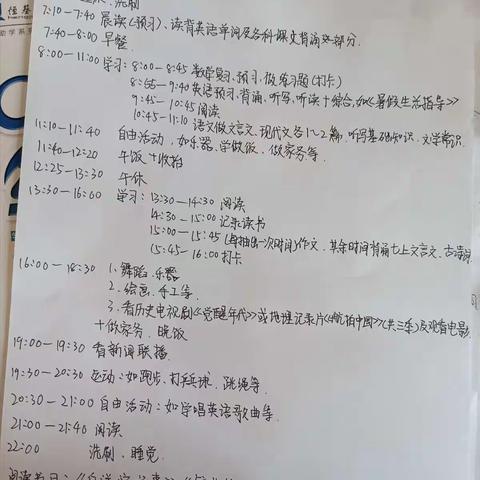 洗刷
7:10-7:40 晨读(预习)、读背英语单词及各科课文背诵部分.
7:40-8:00 早餐.
8:00-11:00 学习: 8:00-8:45 数学复习、预习、做练习题(打卡)
8:55-9:40 英语预习、背诵、听写、听读+综合,如《暑假生活指导》
9:45-10:45 阅读
10:45-11:10 语文做文言文、现代文各1~2篇、听写基础知识、文学常识.
11:10-11:40 自由活动, 如乐器、学做饭、做家务等.
11:40-12:20 午饭+收拾
12:25-13:30 午休
13:30-16:00 学习: 13:30-14:30 阅读
14:30-15:00 记录读书
15:00-15:45 (每抽出一次时间)作文, 其余时间背诵七上文言文、古诗词
15:45-16:00 打卡
16:00-18:30 1.舞蹈、乐器
2.绘画、手工等.
3.看历史电视剧《觉醒年代》或地理记录片《航拍中国》(共三季)及观看电影.
+做家务、晚饭
19:00-19:30 看新闻联播.
19:30-20:30 运动:如跑步、打乒乓球、跳绳等.
20:30-21:00 自由活动:如学唱英语歌曲等.
21:00-21:40 阅读
22:00 洗刷、睡觉.
阅读书目: